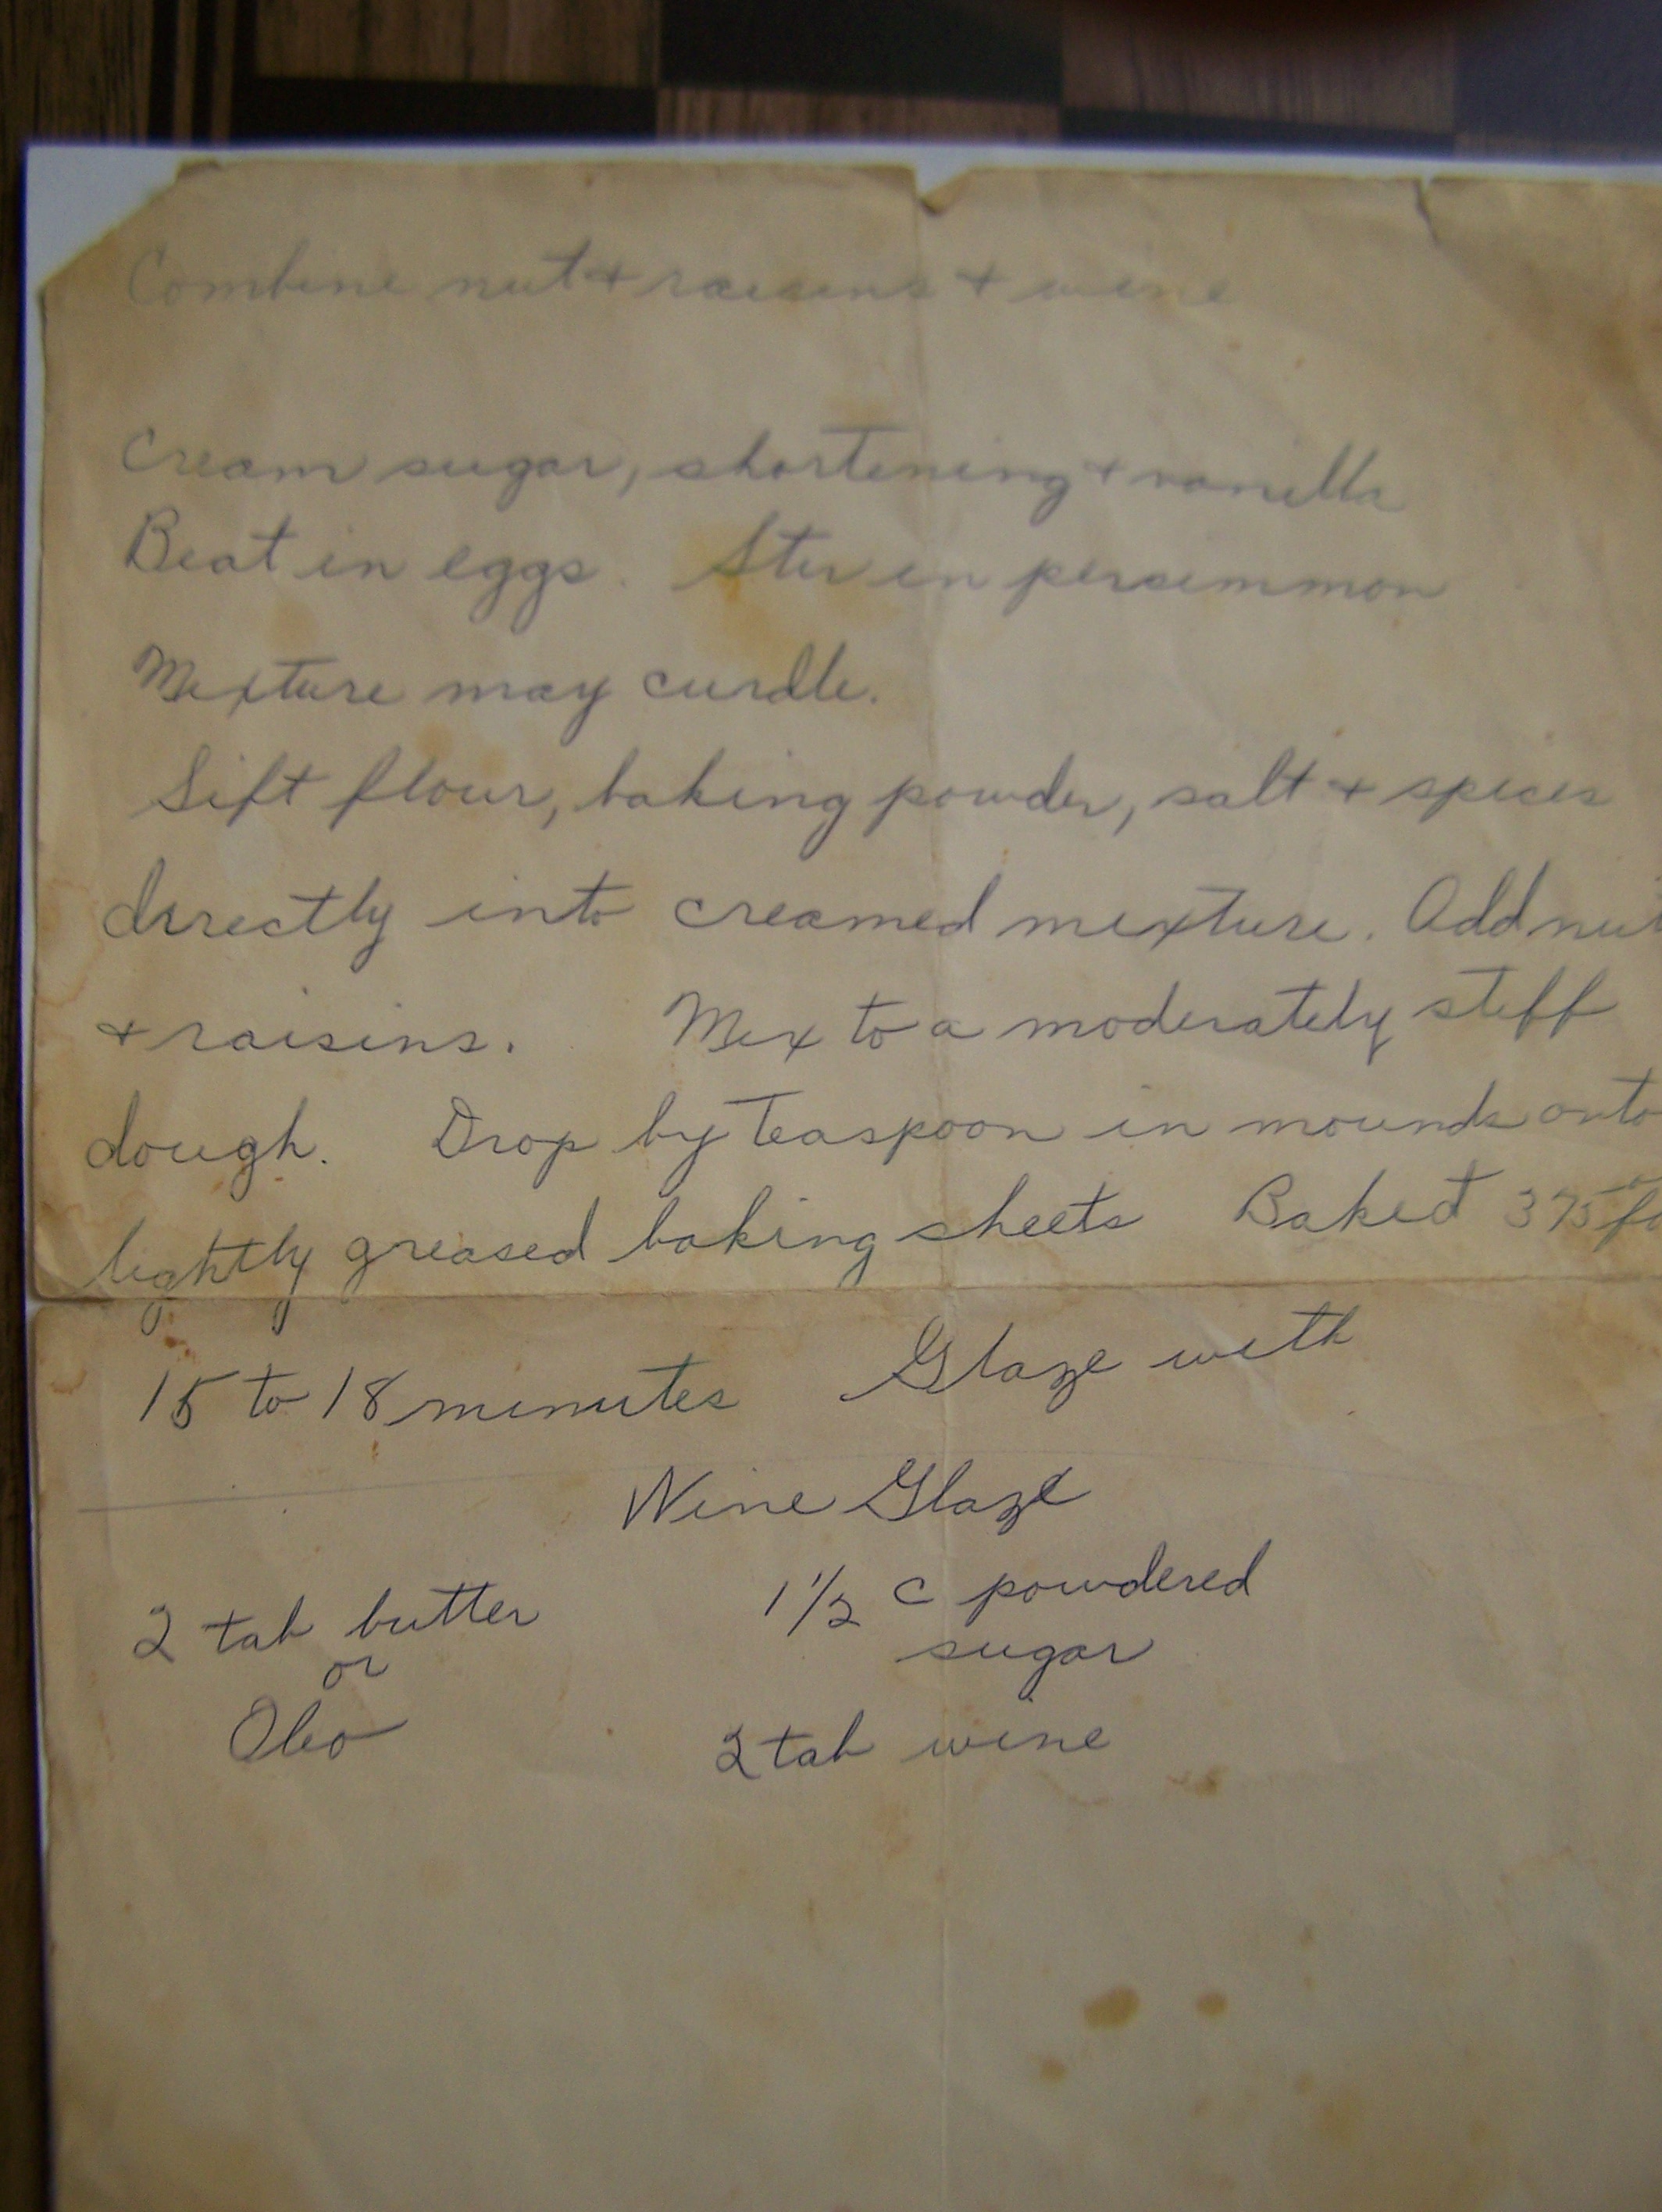 Combine nut + raisins + wine
Cream sugar, shortening + vanilla
Beat in eggs. Stir in persimmon
Mixture may curdle.
Sift flour, baking powder, salt + spices
directly into creamed mixture. Add nut
+ raisins. Mix to a moderately stiff
dough. Drop by Teaspoon in mounds onto
lightly greased baking sheets Baked 375° fo
15 to 18 minutes Glaze with
Wine Glaze
2 tab butter 1 1/2 c powdered
or sugar
Oleo 2 tab wine